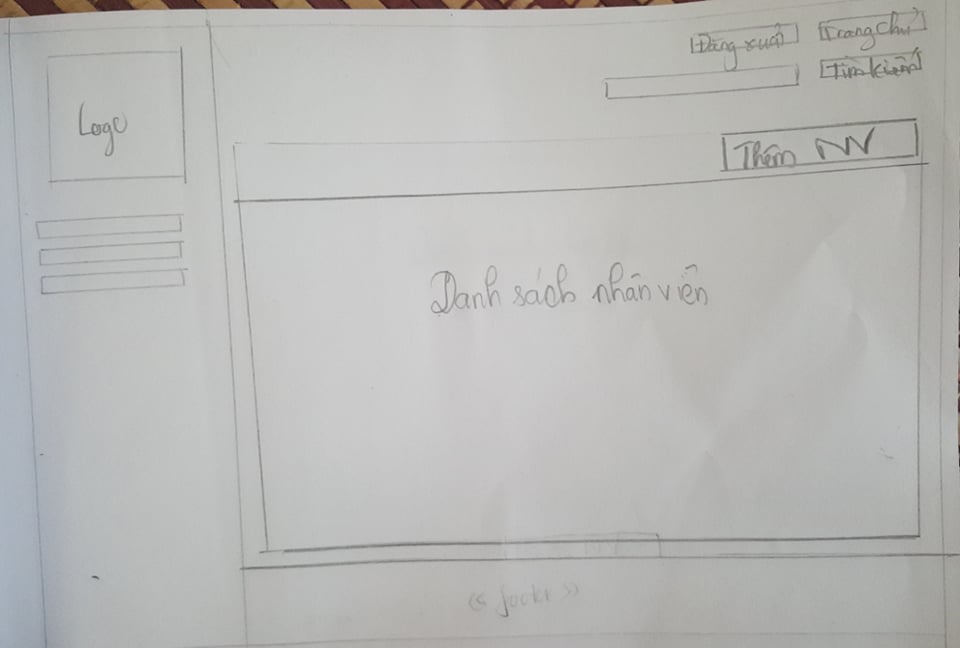 Đăng xuất
Trang chủ
Tìm kiếm
Logo
Thêm NV
Danh sách nhân viên
<< footer >>